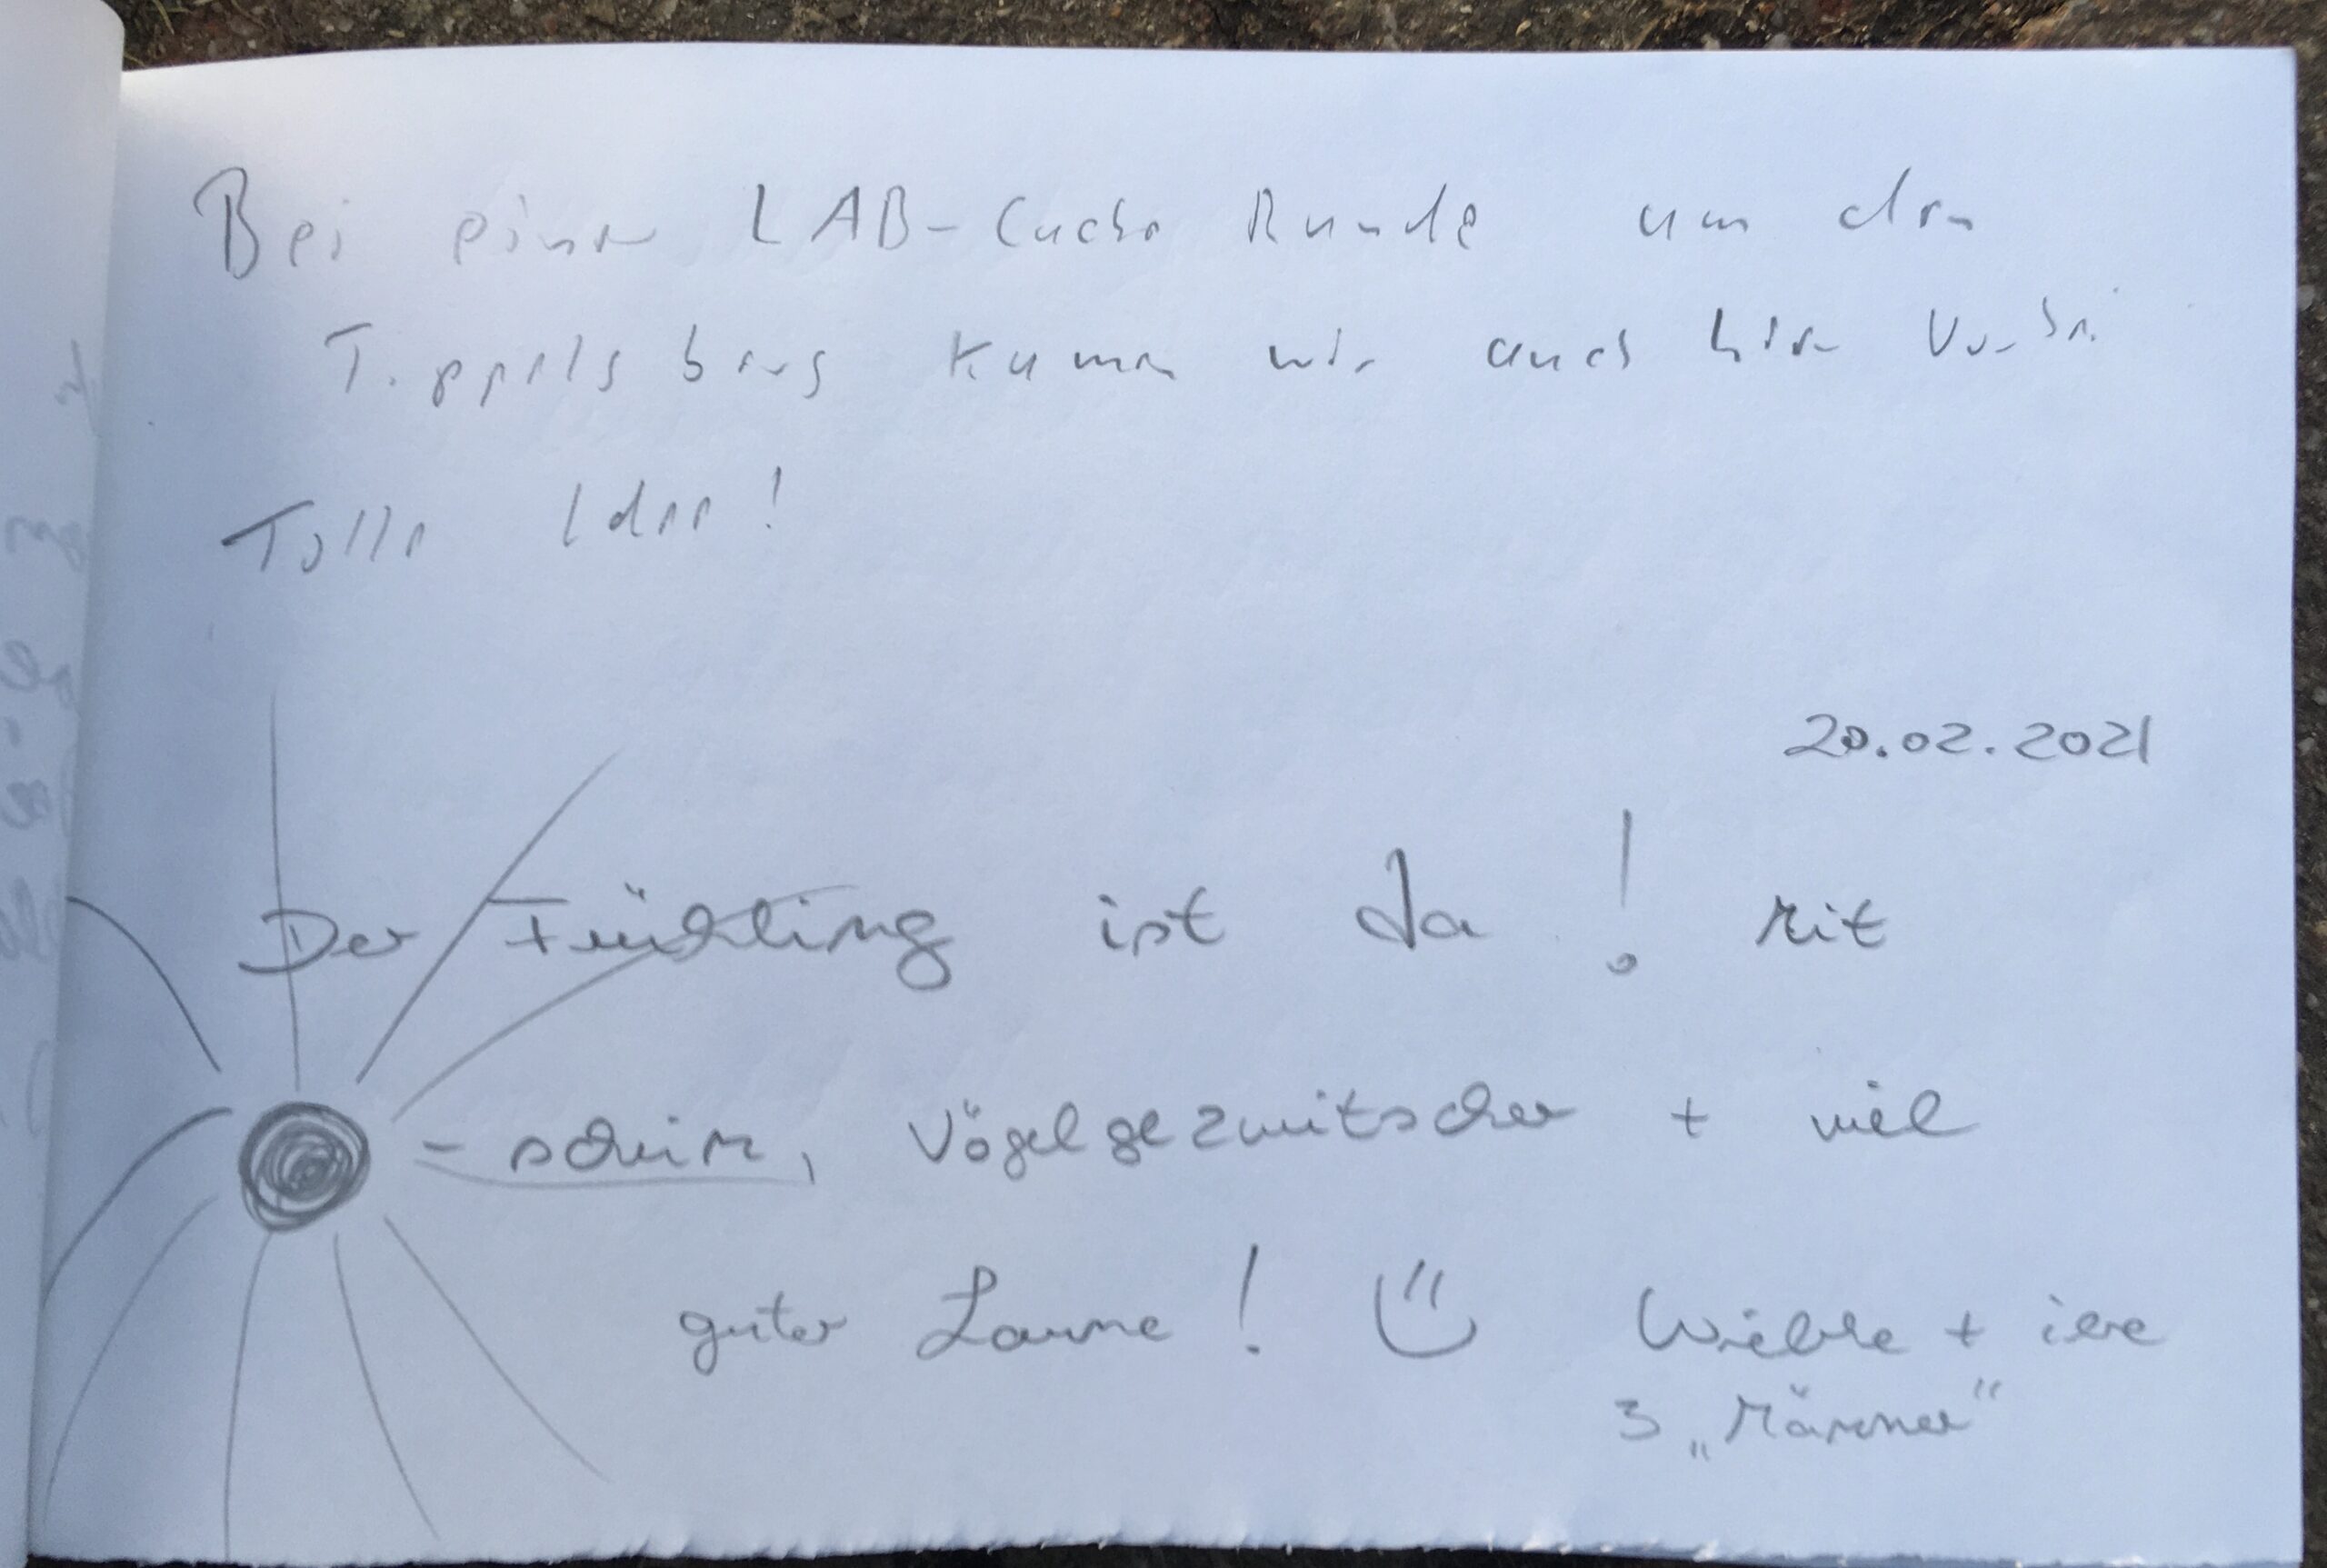 Bei einer LAB-Cache Runde um den
Tippelsberg kamen wir auch hier vorbei
Tolle Idee!
20.02.2021
Der Frühling ist da! Mit
-schein, Vögelgezwitscher + viel
guter Laune! Wiebke + ihre
3 „Männer"